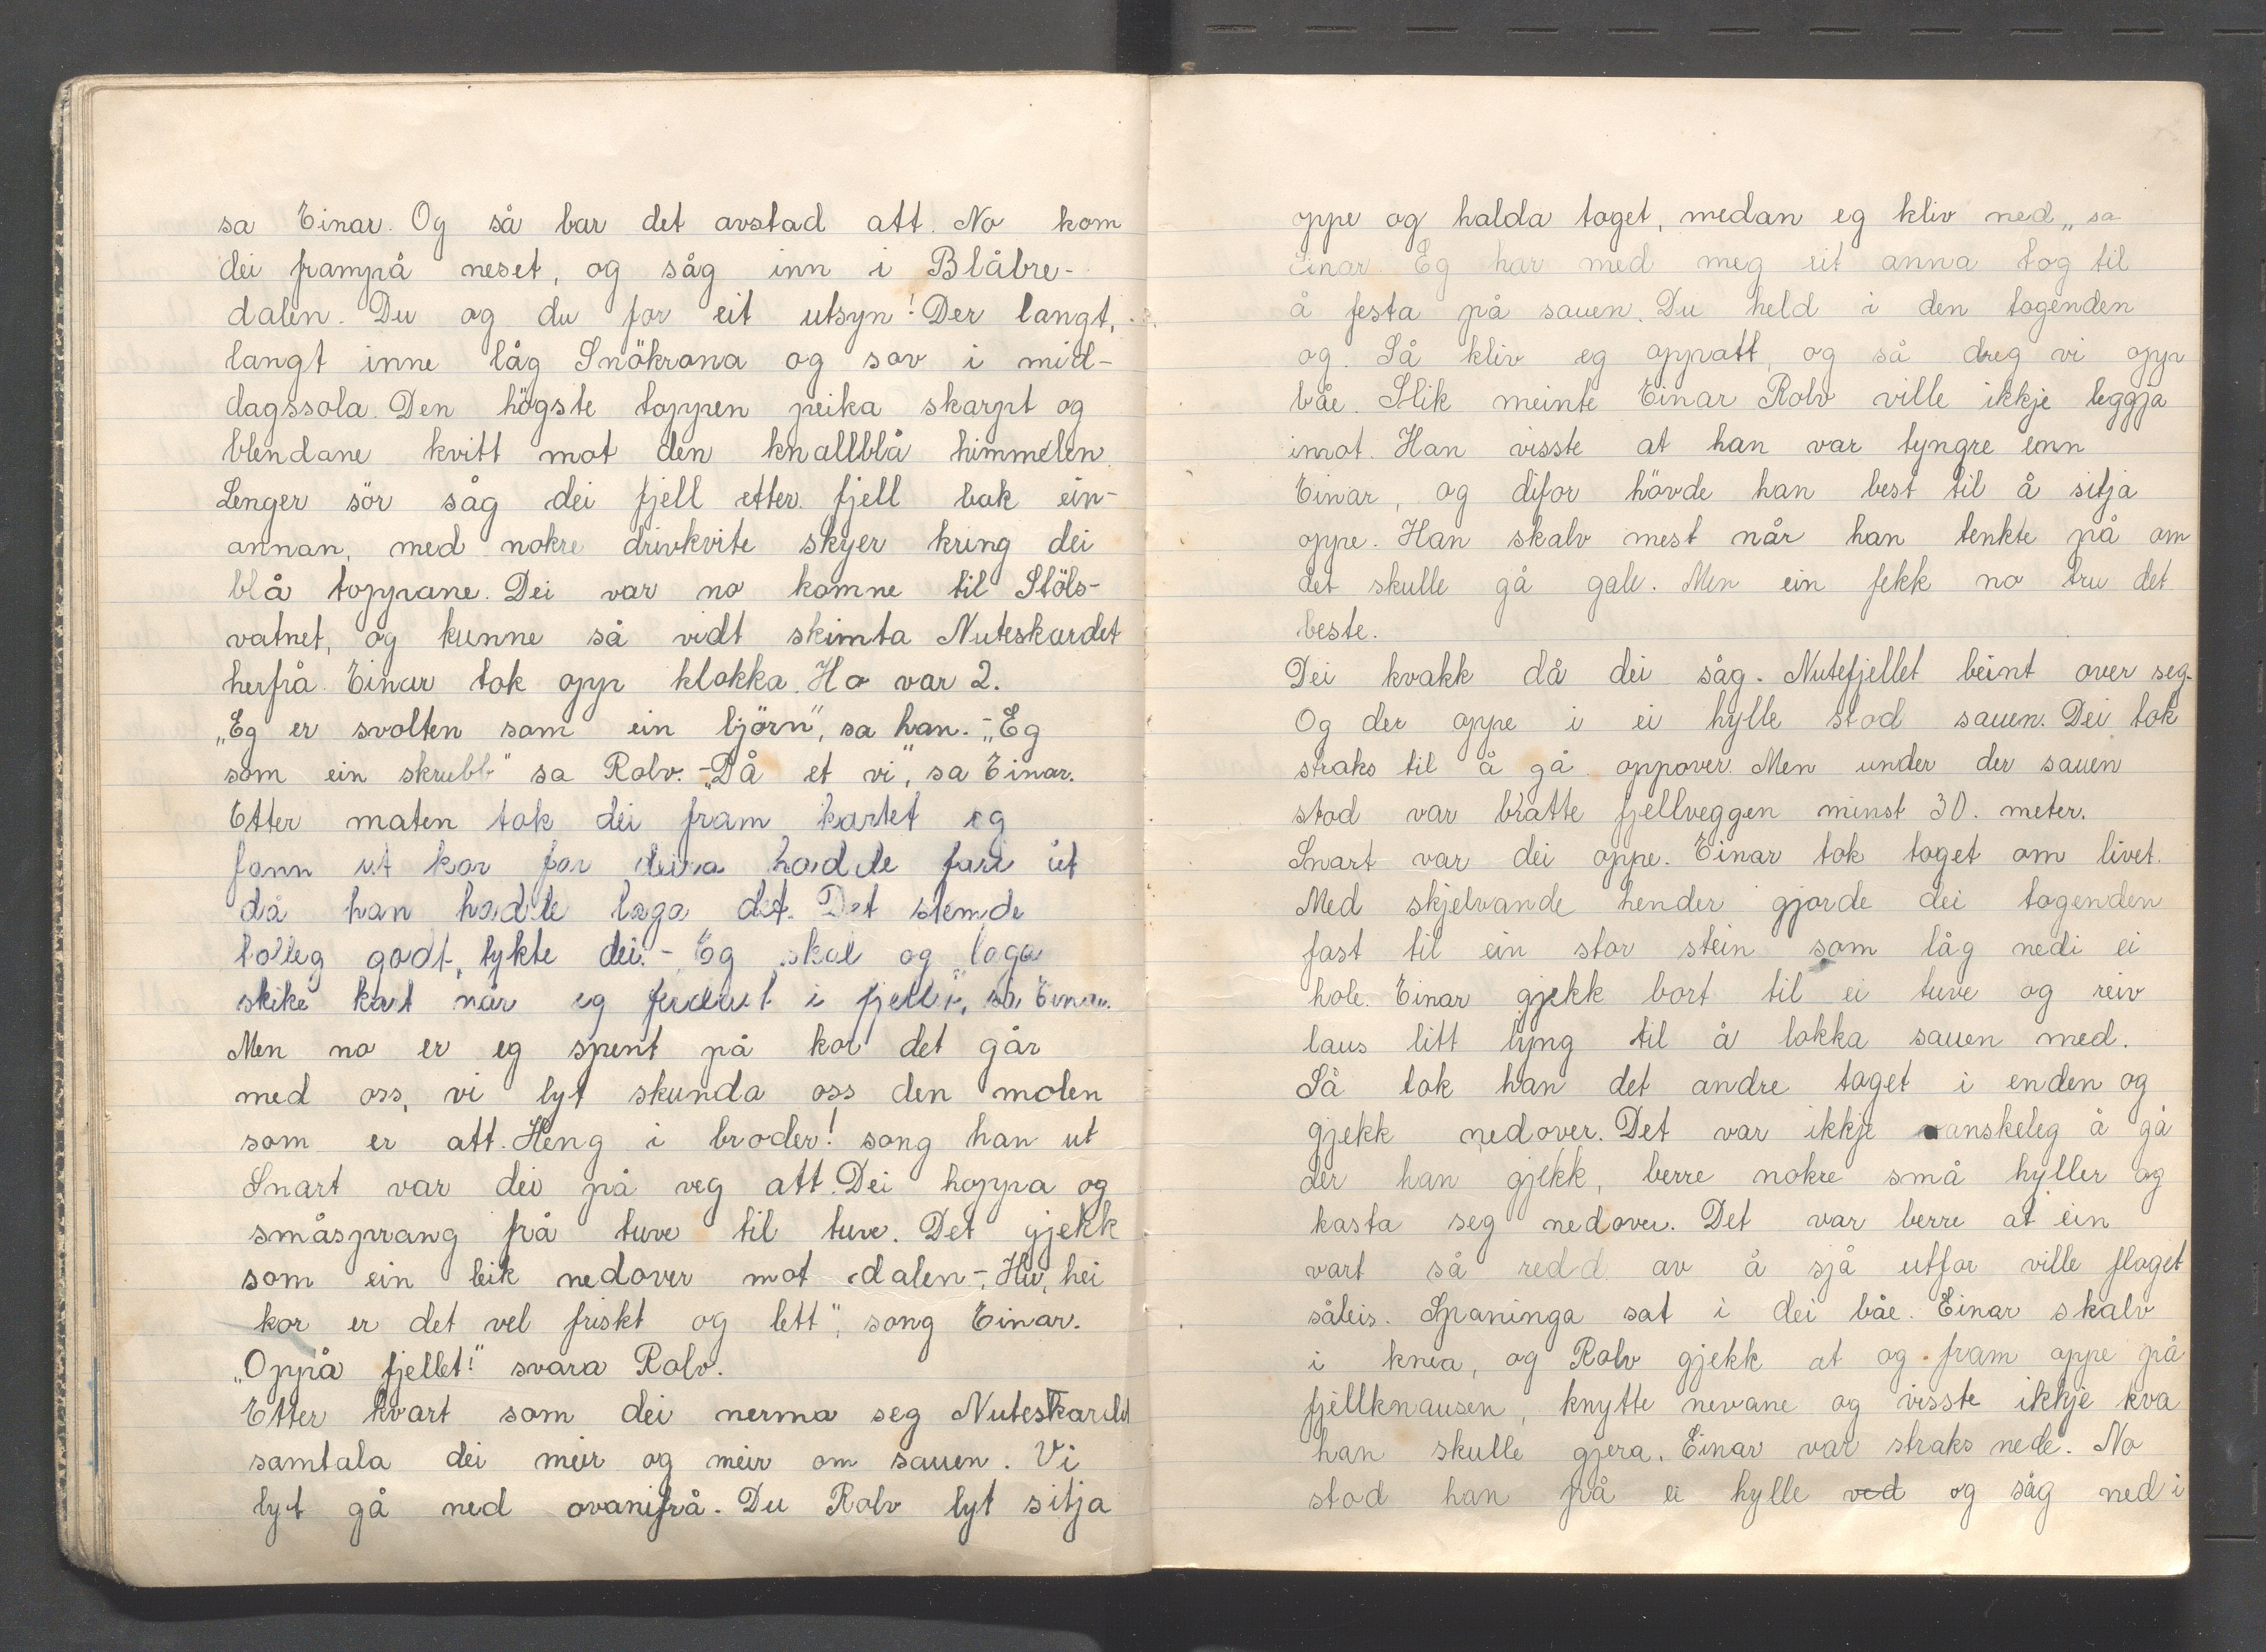 sa Einar. Og så bar det avstad att. No kom
dei frampå neset, og såg inn i Blåbre-
dalen. Du og du for eit utsyn! Der langt,
langt inne låg Snökrona og sov i mid-
dagssola. Den högste toppen peika skarpt og
blendane kvitt mot den knallblå himmelen
Lenger sör såg dei fjell etter fjell bak ein-
annan, med nokre drivkvite skyer kring dei
blå toppane. Dei var no komne til Stöls-
vatnet, og kunne så vidt skimta Nuteskardet
herfrå. Einar tok opp klokka. Ho var 2.
„Eg er svolten som ein björn", sa han. - „Eg
som ein skrubb" sa Rolv. - „Då et vi", sa Einar.
Etter maten tok dei fram kartet og
fann ut kor far deira hadde fare ut
då han hadde laga det. Det stemde
tolleg godt, tykte dei. - „Eg skal og laga
slike kart når eg ferdast i fjellet", sa Einar.
Men no er eg spent på kor det går
med oss, vi lyt skunda oss den molen
som er att. Heng i broder! song han ut
Snart var dei på veg att. Dei hoppa og
småsprang frå tuve til tuve. Det gjekk
som ein leik nedover mot dalen - „Hu, hei
kor er det vel friskt og lett", song Einar.
„Oppå fjellet!" svara Rolv.
Etter kvart som dei nerma seg Nuteskardet
samtala dei meir og meir om sauen. Vi
lyt gå ned ovanifrå. Du Rolv lyt sitja
oppe og halda toget, medan eg kliv ned„ sa
Einar. Eg har med meg eit anna tog til
å festa på sauen. Du held i den togenden
og. Så kliv eg oppatt, og så dreg vi opp
båe. Slik meinte Einar Rolv ville ikkje leggja
imot. Han visste at han var tyngre enn
Einar, og difor hövde han best til å sitja
oppe. Han skalv mest når han tenkte på om
det skulle gå gale. Men ein fekk no tru det
beste.
Dei kvakk då dei såg. Nutefjellet beint over seg.
Og der oppe i ei hylle stod sauen. Dei tok
straks til å gå oppover. Men under der sauen
stod var bratte fjellveggen minst 30. meter.
Snart var dei oppe. Einar tok toget om livet.
Med skjelvande hender gjorde dei togenden
fast til ein stor stein som låg nedi ei
hole. Einar gjekk bort til ei tuve og reiv
laus litt lyng til å lokka sauen med.
Så tok han det andre toget i enden og
gjekk nedover. Det var ikkje vanskeleg å gå
der han gjekk, berre nokre små hyller og
kasta seg nedover. Det var berre at ein
vart så redd av å sjå utfor ville floget
såleis. Spaninga sat i dei båe. Einar skalv
i knea, og Rolv gjekk at og fram oppe på
fjellknausen, knytte nevane og visste ikkje kva
han skulle gjera. Einar var straks nede. No
stod han på ei hylle ved og såg ned i